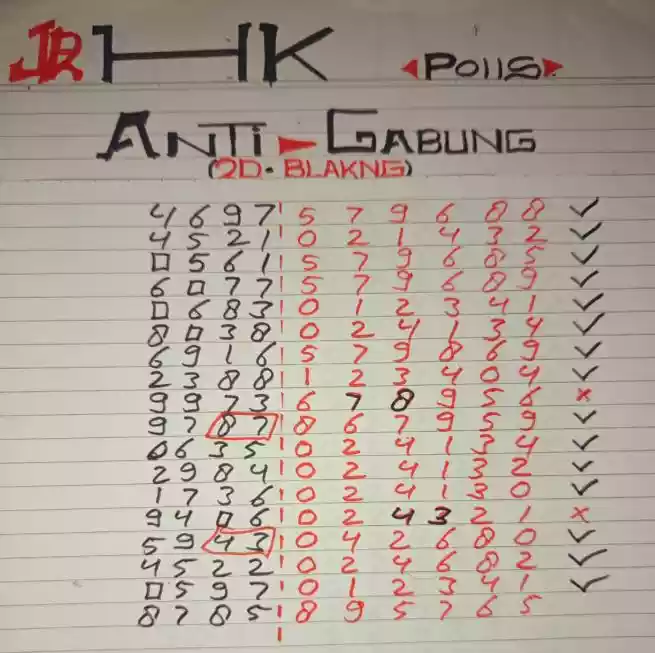 JR HK ◄POllS►
ANTi ► GABUNG
(2D. BLAKNG)
4 6 9 7 5 7 9 6 8 8 ✓
4 5 2 1 0 2 1 4 3 2 ✓
0 5 6 1 5 7 9 6 8 5 ✓
6 0 7 7 5 7 9 6 8 9 ✓
0 6 8 3 0 1 2 3 4 1 ✓
8 0 3 8 0 2 4 1 3 4 ✓
6 9 1 6 5 7 9 8 6 9 ✓
2 3 8 8 1 2 3 4 0 4 ✓
9 9 7 3 6 7 8 9 5 6 ×
9 7 8 7 8 6 7 9 5 9 ✓
0 6 3 5 0 2 4 1 3 4 ✓
2 9 8 4 0 2 4 1 3 2 ✓
1 7 3 6 0 2 4 1 3 0 ✓
9 4 0 6 0 2 4 3 2 1 ×
5 9 4 3 0 4 2 6 8 0 ✓
4 5 2 2 0 2 4 6 8 2 ✓
0 5 9 7 0 1 2 3 4 1 ✓
8 7 8 5 8 9 5 7 6 5